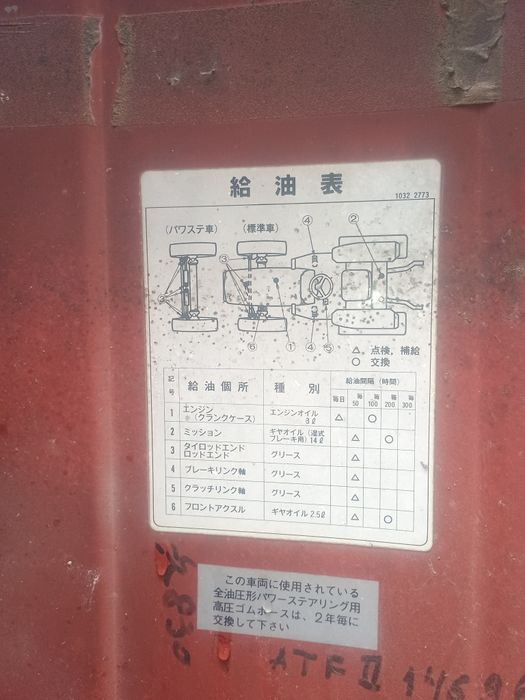 給油表
1032 2773
(パワステ車)
(標準車)
④
②
③
⑥
①
④
⑤
△ 点検、補給
○ 交換
記号 給油個所 種別 給油間隔(時間)
毎日 毎50 毎100 毎200 毎300
1 エンジン ※(クランクケース) エンジンオイル 8ℓ △ ○
2 ミッション ギヤオイル(湿式ブレーキ用)14ℓ △ ○
3 タイロッドエンド ロッドエンド グリース △
4 ブレーキリンク軸 グリース △
5 クラッチリンク軸 グリース △
6 フロントアクスル ギヤオイル 2.5ℓ △ ○
この車両に使用されている
全油圧形パワーステアリング用
高圧ゴムホースは、2年毎に
交換して下さい
ATF II